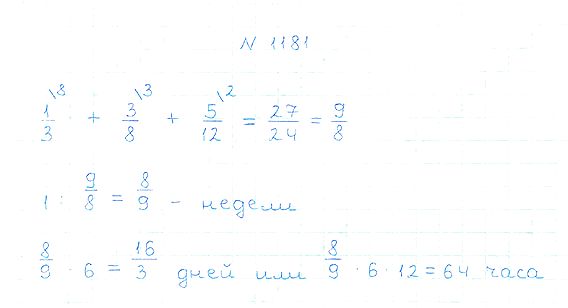 N 1181
1/3 \8 + 3/8 \3 + 5/12 \2 = 27/24 = 9/8
1 : 9/8 = 8/9 - недели
8/9 · 6 = 16/3 дней или 8/9 · 6 · 12 = 64 часа